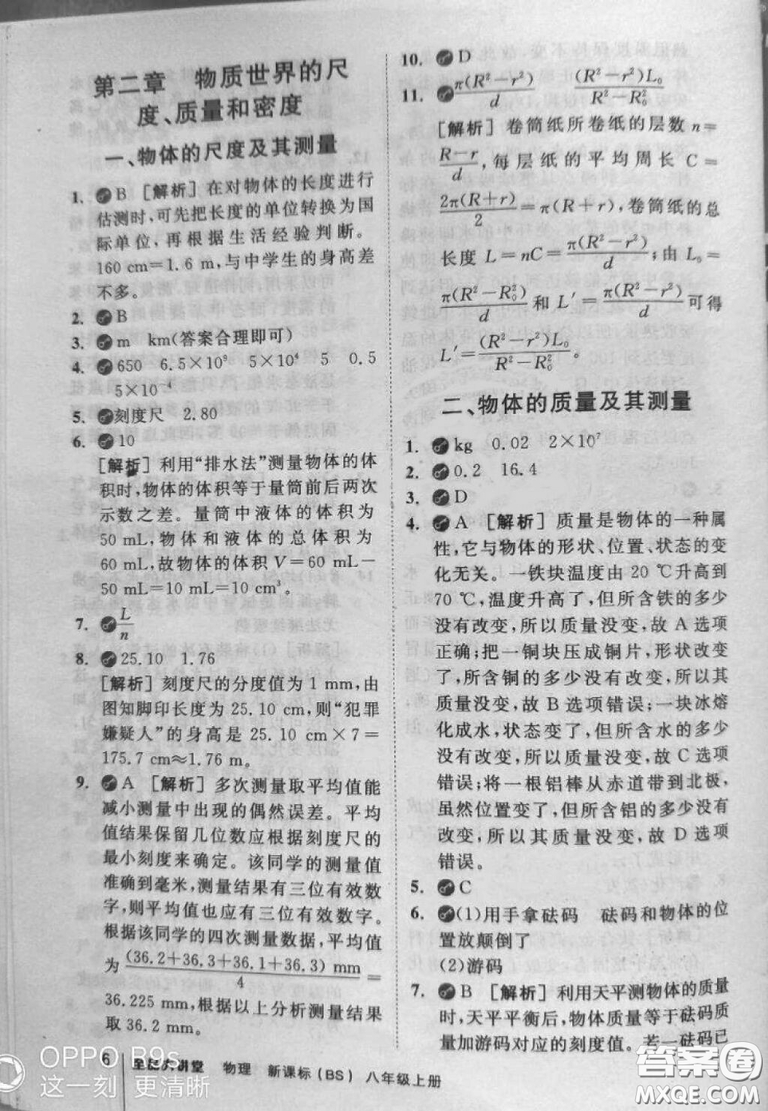 第二章 物质世界的尺
度、质量和密度
一、物体的尺度及其测量
1. B [解析]在对物体的长度进行
估测时,可先把长度的单位转换为国
际单位,再根据生活经验判断。
160 cm=1.6 m,与中学生的身高差
不多。
2. B
3. m km(答案合理即可)
4. 650 6.5×10⁸ 5×10⁴ 5 0.5
5×10⁻⁴
5. 刻度尺 2.80
6. 10
[解析]利用“排水法”测量物体的体
积时,物体的体积等于量筒前后两次
示数之差。量筒中液体的体积为
50 mL,物体和液体的总体积为
60 mL,故物体的体积V=60 mL-
50 mL=10 mL=10 cm³。
7. L/n
8. 25.10 1.76
[解析]刻度尺的分度值为1 mm,由
图知脚印长度为25.10 cm,则“犯罪
嫌疑人”的身高是25.10 cm×7=
175.7 cm≈1.76 m。
9. A [解析]多次测量取平均值能
减小测量中出现的偶然误差。平均
值结果保留几位数应根据刻度尺的
最小刻度来确定。该同学的测量值
准确到毫米,测量结果有三位有效数
字,则平均值也应有三位有效数字。
根据该同学的四次测量数据,平均值
为(36.2+36.3+36.1+36.3) mm/4=
36.225 mm,根据以上分析测量结果
取36.2 mm。
10. D
11. π(R²-r²)/d (R²-r²)L₀/(R²-R₀²)
[解析]卷筒纸所卷纸的层数n=
(R-r)/d,每层纸的平均周长C=
2π(R+r)/2=π(R+r),卷筒纸的总
长度L=nC=π(R²-r²)/d;由L₀=
π(R²-R₀²)/d和L′=π(R²-r²)/d可得
L′=(R²-r²)L₀/(R²-R₀²)。
二、物体的质量及其测量
1. kg 0.02 2×10⁷
2. 0.2 16.4
3. D
4. A [解析]质量是物体的一种属
性,它与物体的形状、位置、状态的变
化无关。一铁块温度由20 ℃升高到
70 ℃,温度升高了,但所含铁的多少
没有改变,所以质量不变,故A选项
正确;把一铜块压成铜片,形状改变
了,所含铜的多少没有改变,所以其
质量不变,故B选项错误;一块冰熔
化成水,状态变了,但所含水的多少
没有改变,所以质量没变,故C选项
错误;将一根铝棒从赤道带到北极,
虽然位置变了,但所含铝的多少没有
改变,所以其质量没变,故D选项
错误。
5. C
6. (1)用手拿砝码 砝码和物体的位
置放颠倒了
(2)游码
7. B [解析]利用天平测物体的质量
时,天平平衡后,物体质量等于砝码质
量与游码示数之和。若一砝码已
6 全程大讲堂 物理 新课标(BS) 八年级上册
OPPO R9s
这一刻 更清晰
答案圈